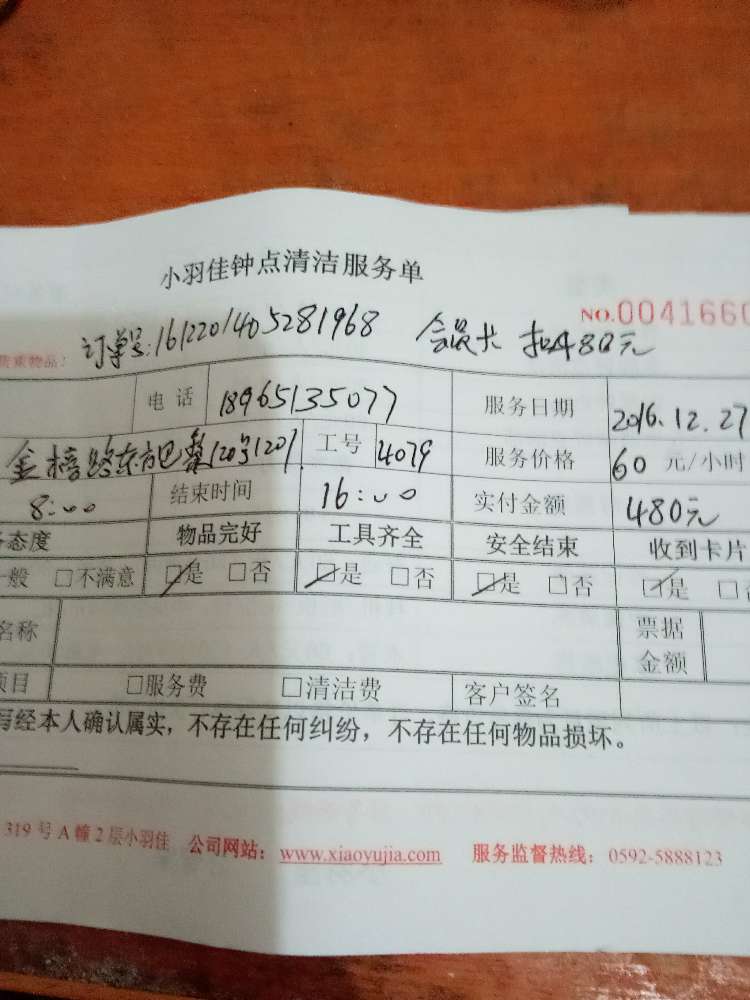 小羽佳钟点清洁服务单
订单号:1612201405281968 会员卡 扣480元 NO.0041660
贵重物品:
电话 18965135077 服务日期 2016.12.27
金榜路东方巴黎120号1201 工号 4079 服务价格 60 元/小时
8:00 结束时间 16:00 实付金额 480元
态度 物品完好 工具齐全 安全结束 收到卡片
一般 □不满意 ☑是 □否 ☑是 □否 ☑是 □否 ☑是
名称 票据金额
项目 □服务费 □清洁费 客户签名
写经本人确认属实,不存在任何纠纷,不存在任何物品损坏。
319号A幢2层小羽佳 公司网站: www.xiaoyujia.com 服务监督热线: 0592-5888123